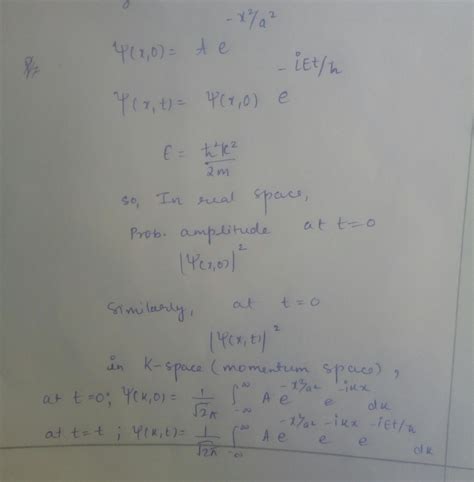 Ψ(x,0) = A e^{-x²/a²}
Ψ(x,t) = Ψ(x,0) e^{-iEt/ħ}
E = ħ²k²/2m
so, In real space,
Prob. amplitude at t=0
|Ψ(x,0)|²
Similarly, at t=0
|Ψ(x,t)|²
in K-space (momentum space),
at t=0; Ψ(k,0) = 1/√2π ∫_{-∞}^{∞} A e^{-x²/a²} e^{-ikx} dx
at t=t; Ψ(k,t) = 1/√2π ∫_{-∞}^{∞} A e^{-x²/a²} e^{-ikx} e^{-iEt/ħ} dx